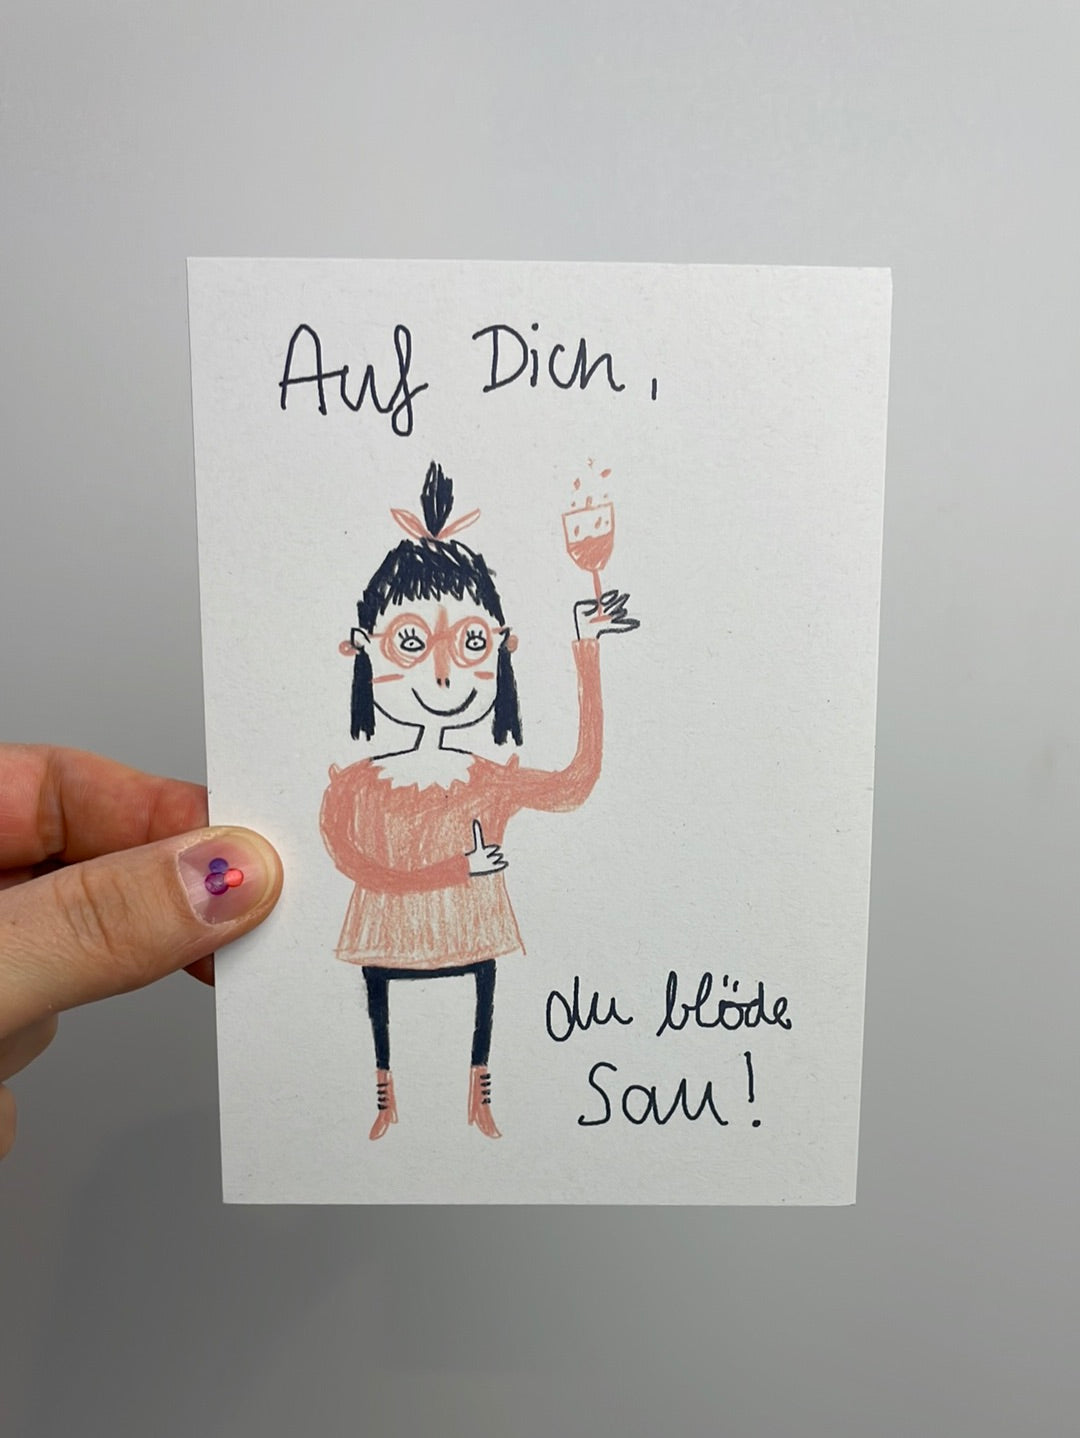 Auf Dich,
du blöde
Sau!